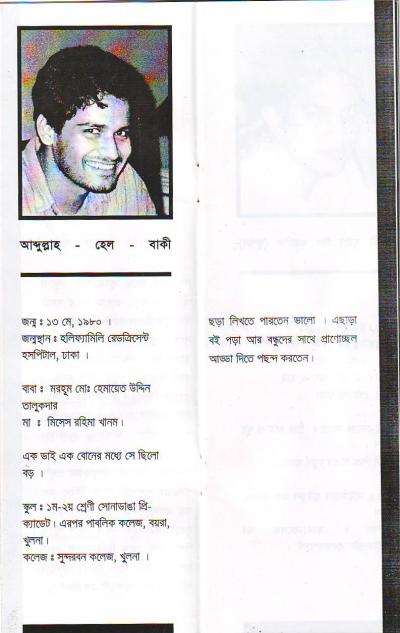 আব্দুল্লাহ - হেল - বাকী
জন্ম ঃ ১৩ মে, ১৯৮০ ।
জন্মস্থান ঃ হলিফ্যামিলি রেডক্রিসেন্ট
হসপিটাল, ঢাকা ।
বাবা ঃ মরহূম মোঃ হেমায়েত উদ্দিন
তালুকদার
মা ঃ মিসেস রহিমা খানম।
এক ভাই এক বোনের মধ্যে সে ছিলো
বড় ।
স্কুল ঃ ১ম-২য় শ্রেণী সোনাডাঙা প্রি-
ক্যাডেট। এরপর পাবলিক কলেজ, বয়রা,
খুলনা।
কলেজ ঃ সুন্দরবন কলেজ, খুলনা ।
ছড়া লিখতে পারতেন ভালো । এছাড়া
বই পড়া আর বন্ধুদের সাথে প্রাণোচ্ছল
আড্ডা দিতে পছন্দ করতেন।